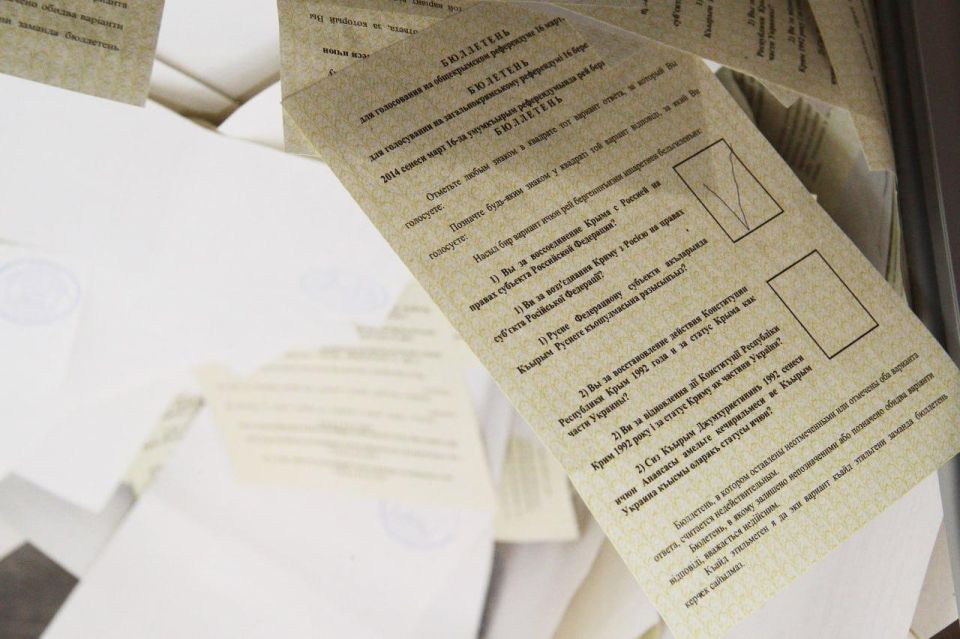 БЮЛЛЕТЕНЬ
для голосования на общекрымском референдуме 16 март
БЮЛЕТЕНЬ
для голосування на загальнокримському референдумі 16 бере
БЮЛЛЕТЕНЬ
2014 сенеси март 16-да умумкъырым референдумында рей бере
Отметьте любым знаком в квадрате тот вариант ответа, за который Вы
голосуете:
Позначте будь-яким знаком у квадраті той варіант відповіді, за який Ви
голосуєте:
Насыл бир вариант ичюн рей бергенинъизни ишаретинен бельгиленъиз:
1) Вы за воссоединение Крыма с Россией на
правах субъекта Российской Федерации?
1) Ви за возз'єднання Криму з Росією на правах
суб'єкта Російської Федерації?
1) Русие Федерациону субъекти акъларында
Къырым Русиеге къошулмасына разысынъыз?
2) Вы за восстановление действия Конституции
Республики Крым 1992 года и за статус Крыма как
части Украины?
2) Ви за відновлення дії Конституції Республіки
Крим 1992 року і за статус Криму як частини України?
2) Сиз Къырым Джумхуриетининъ 1992 сенеси
ичюн Анаясасы амельге кечирильмеси ве Къырым
Украина къысмы оларакъ статусы ичюн?
Бюллетень, в котором оставлены неотмеченными или отмечены оба варианта
ответа, считается недействительным.
Бюлетень, в якому залишено непозначеними або позначено обидва варіанти
відповіді, вважається недійсним.
Къайд этильмеген я да эки вариант къайд этильген заманда бюллетень
керчек сайылмаз.